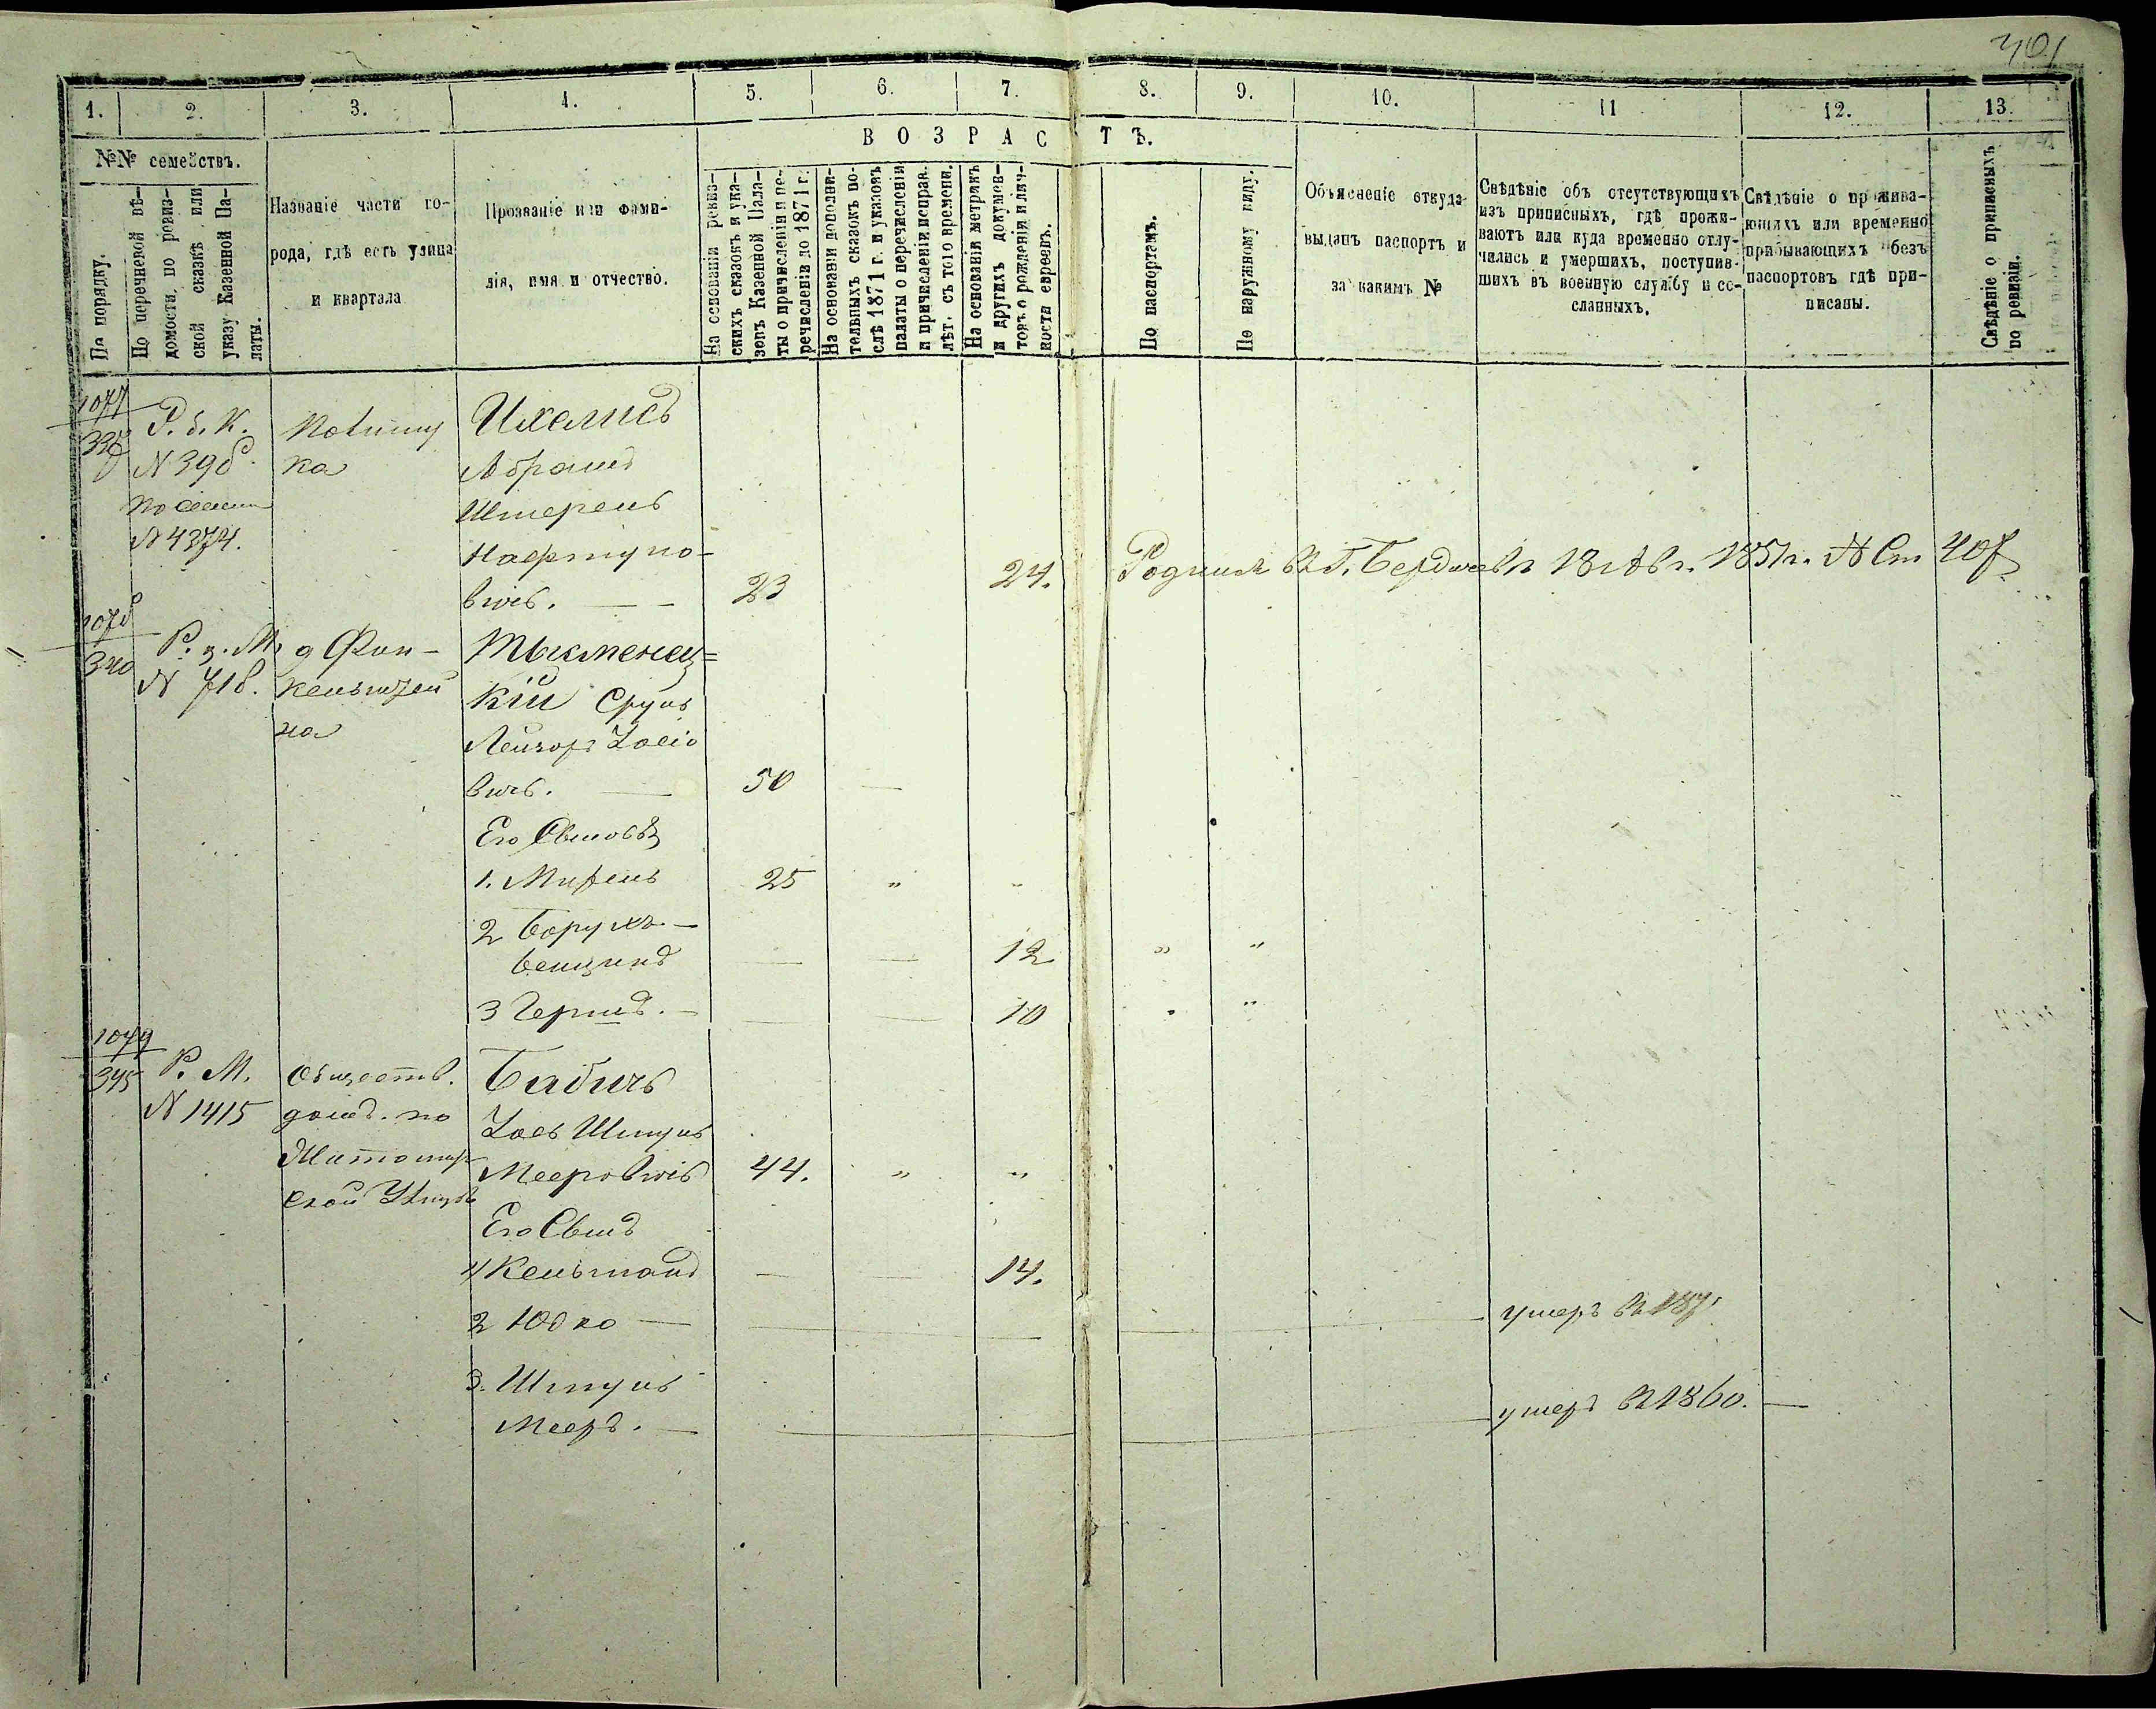 401
1. 2. 3. 4. 5. 6. 7. 8. 9. 10. 11 12. 13.
ВОЗРАСТЪ.
№№ семействъ.
По порядку.
По перечневой вѣ-
домости, по ревиз-
ской сказкѣ или
указу Казенной Па-
латы.
Названіе части го-
рода, гдѣ есть улица
и квартала
Прозваніе или фами-
лія, имя и отчество.
На основаніи ревиз-
скихъ сказокъ и ука-
зовъ Казенной Пала-
ты о причисленіи и пе-
речисленіи до 1871 г.
На основаніи дополни-
тельныхъ сказокъ по-
слѣ 1871 г. и указовъ
палаты о перечисленіи
и причисленіи исправ.
лѣт. съ того времени.
На основаніи метрикъ
и другихъ докумен-
товъ о рожденіи и лич-
ности евреевъ.
По паспортамъ.
По наружному виду.
Объясненіе откуда
выданъ паспортъ и
за какимъ №
Свѣдѣніе объ отсутствующихъ
изъ приписныхъ, гдѣ прожи-
ваютъ или куда временно отлу-
чились и умершихъ, поступив-
шихъ въ военную службу и со-
сланныхъ.
Свѣдѣніе о прожива-
ющихъ или временно
прибывающихъ безъ
паспортовъ гдѣ при-
писаны.
Свѣдѣніе о приписныхъ
по ревизіи.
1077
Р. б. К.
N 398.
N 4374.
ка
Ихелисъ
Абрамъ
Штерень
Нафтуло-
вичъ. — — 23 24. Родился въ г. Бердичевѣ 1851 г. № Ст 407
1078
340
Р. з. М.
N 718.
д Фин-
кельштей
на
Тыкменец=
кій Сруль
Лейзоръ Іосіо
вичъ. — 50 —
Его Сыновья
1. 25 " "
2 Борухъ —
Бенціонъ — — 12 " "
3 Гершъ. — — — 10 " "
1079
345
Р. М.
N 1415
Обществ.
домъ. по
Житомир
ской Улицѣ
Бабичъ
Іось Шмуль
Мееровичъ 44. " "
Его Сынъ
1/ Кельманъ — — 14.
2 Юдко — умеръ въ 187
3. Шмуль
Мееръ. — умеръ въ 1860. —